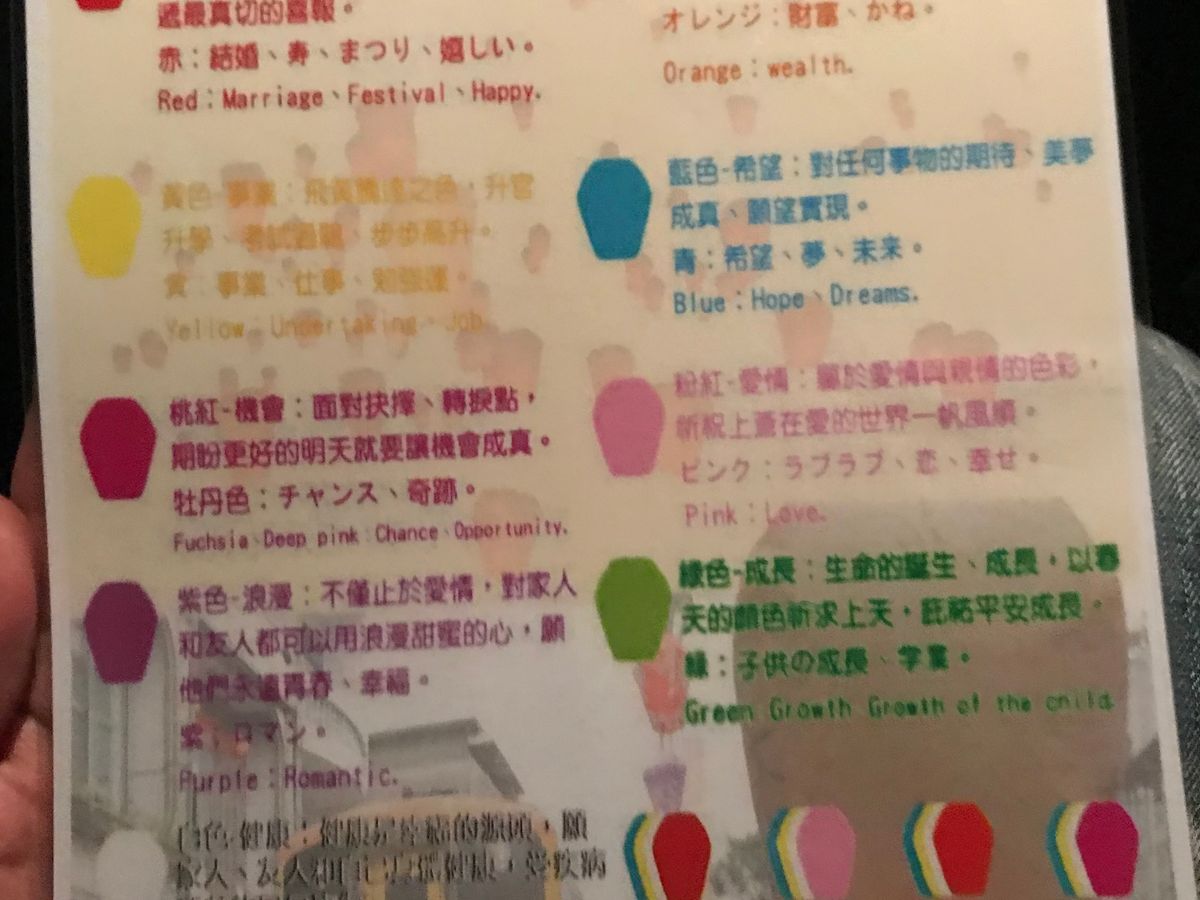 遞最真切的喜報。
赤：結婚、寿、まつり、嬉しい。
Red：Marriage、Festival、Happy.
オレンジ：財富、かね。
Orange：wealth.
黃色-事業：飛黃騰達之色，升官
升學、考試過關、步步高升。
黃：事業、仕事、勉強運。
Yellow：Undertaking、Job.
藍色-希望：對任何事物的期待、美夢
成真、願望實現。
青：希望、夢、未来。
Blue：Hope、Dreams.
桃紅-機會：面對抉擇、轉捩點，
期盼更好的明天就要讓機會成真。
牡丹色：チャンス、奇跡。
Fuchsia、Deep pink：Chance、Opportunity.
粉紅-愛情：屬於愛情與親情的色彩，
祈祝上蒼在愛的世界一帆風順。
ピンク：ラブラブ、恋、幸せ。
Pink：Love.
紫色-浪漫：不僅止於愛情，對家人
和友人都可以用浪漫甜蜜的心，願
他們永遠青春、幸福。
紫：ロマン。
Purple：Romantic.
綠色-成長：生命的誕生、成長，以春
天的顏色祈求上天，庇祐平安成長。
緑：子供の成長、学業。
Green Growth Growth of the child
白色-健康：健康是幸福的源頭，願
家人、友人和自己身體健康，